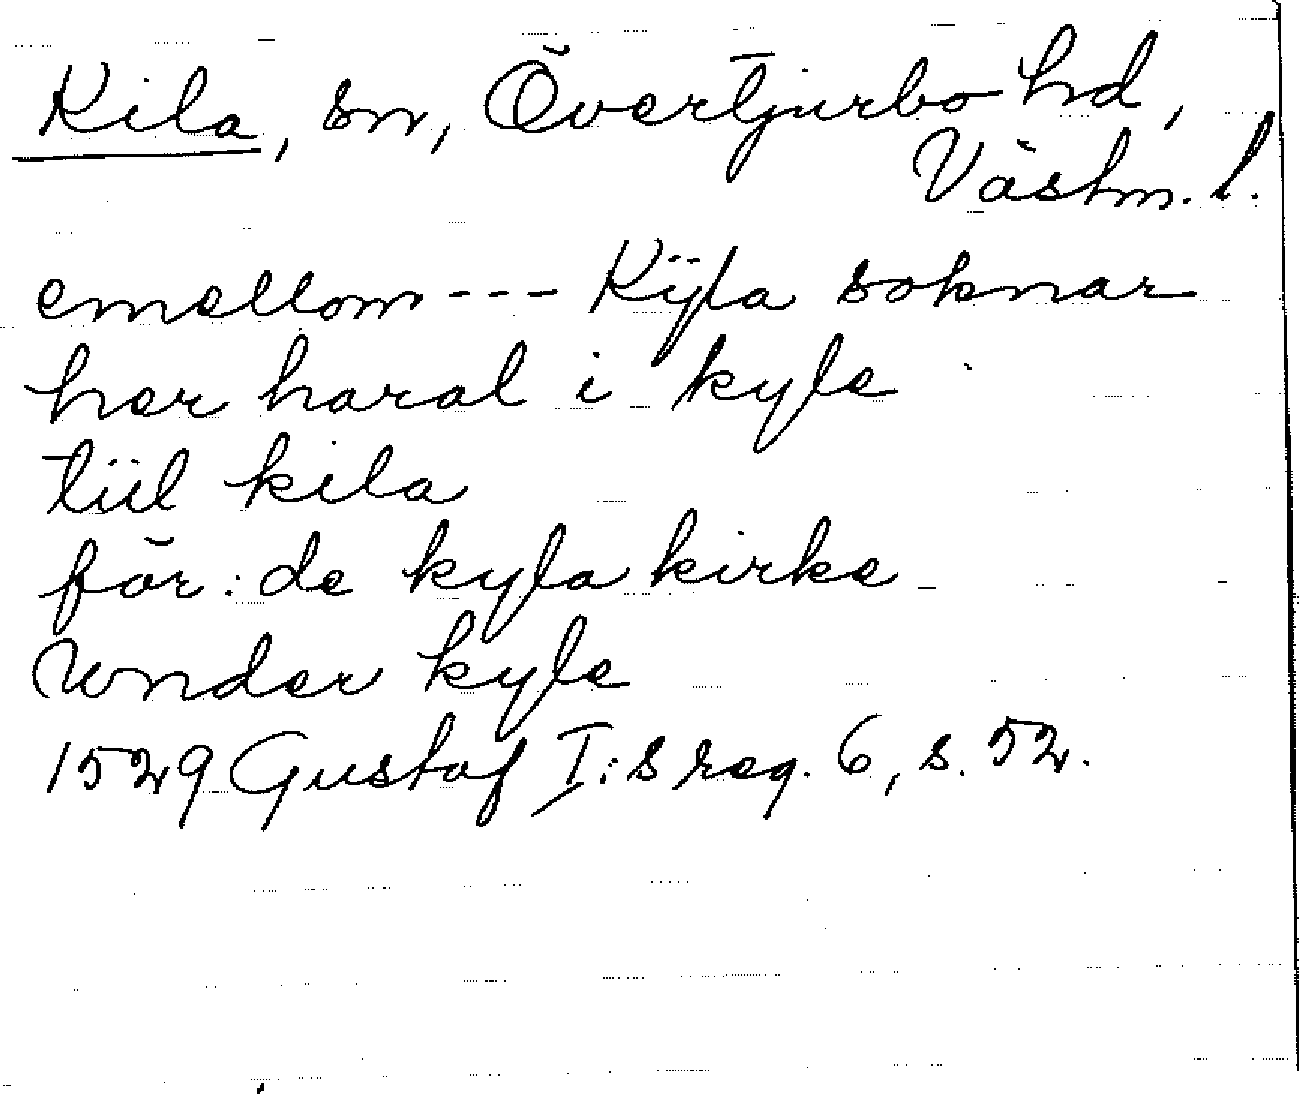 Kila, sn, Övertjurbo hd,
Västm. l.
emellom --- Kÿla soknar
her haral i kyle
tiil kila
för: de kyla kirke
Wnder kyle
1529 Gustaf I:s reg. 6, s. 52.